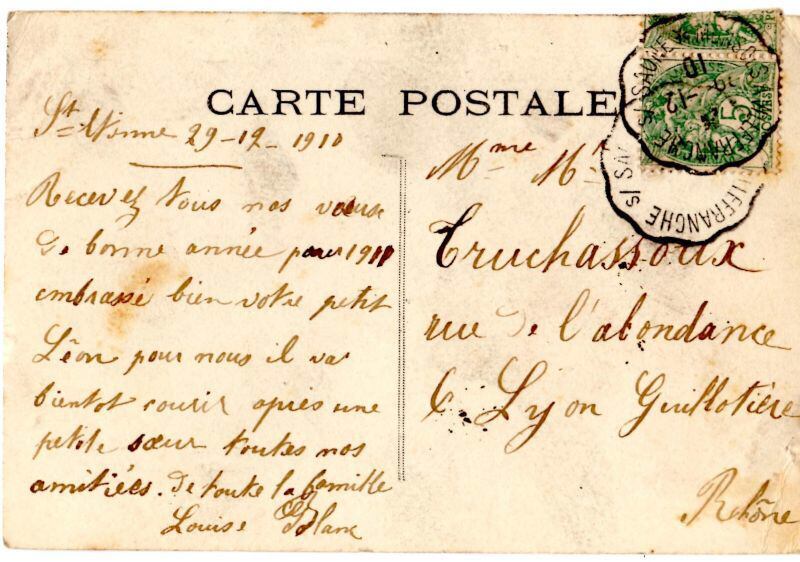 CARTE POSTALE
29-12-1910
Recevez tous nos vœux
de bonne année pour 1911
embrassé bien votre petit
Léon pour nous il va
bientot courir après une
petite sœur toutes nos
amitiées. de toute la famille
Louise Blanc
Mme Mr
Truchassoux
rue de l'abondance
6 Lyon Guillotière
Rhône
5
VILLEFRANCHE s/ SAONE
29-12
10